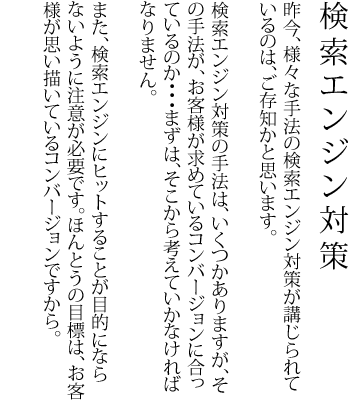 検索エンジン対策
昨今、様々な手法の検索エンジン対策が講じられて
いるのは、ご存知かと思います。
検索エンジン対策の手法は、いくつかありますが、そ
の手法が、お客様が求めているコンバージョンに合っ
ているのか・・・まずは、そこから考えていかなければ
なりません。
また、検索エンジンにヒットすることが目的になら
ないように注意が必要です。ほんとうの目標は、お客
様が思い描いているコンバージョンですから。